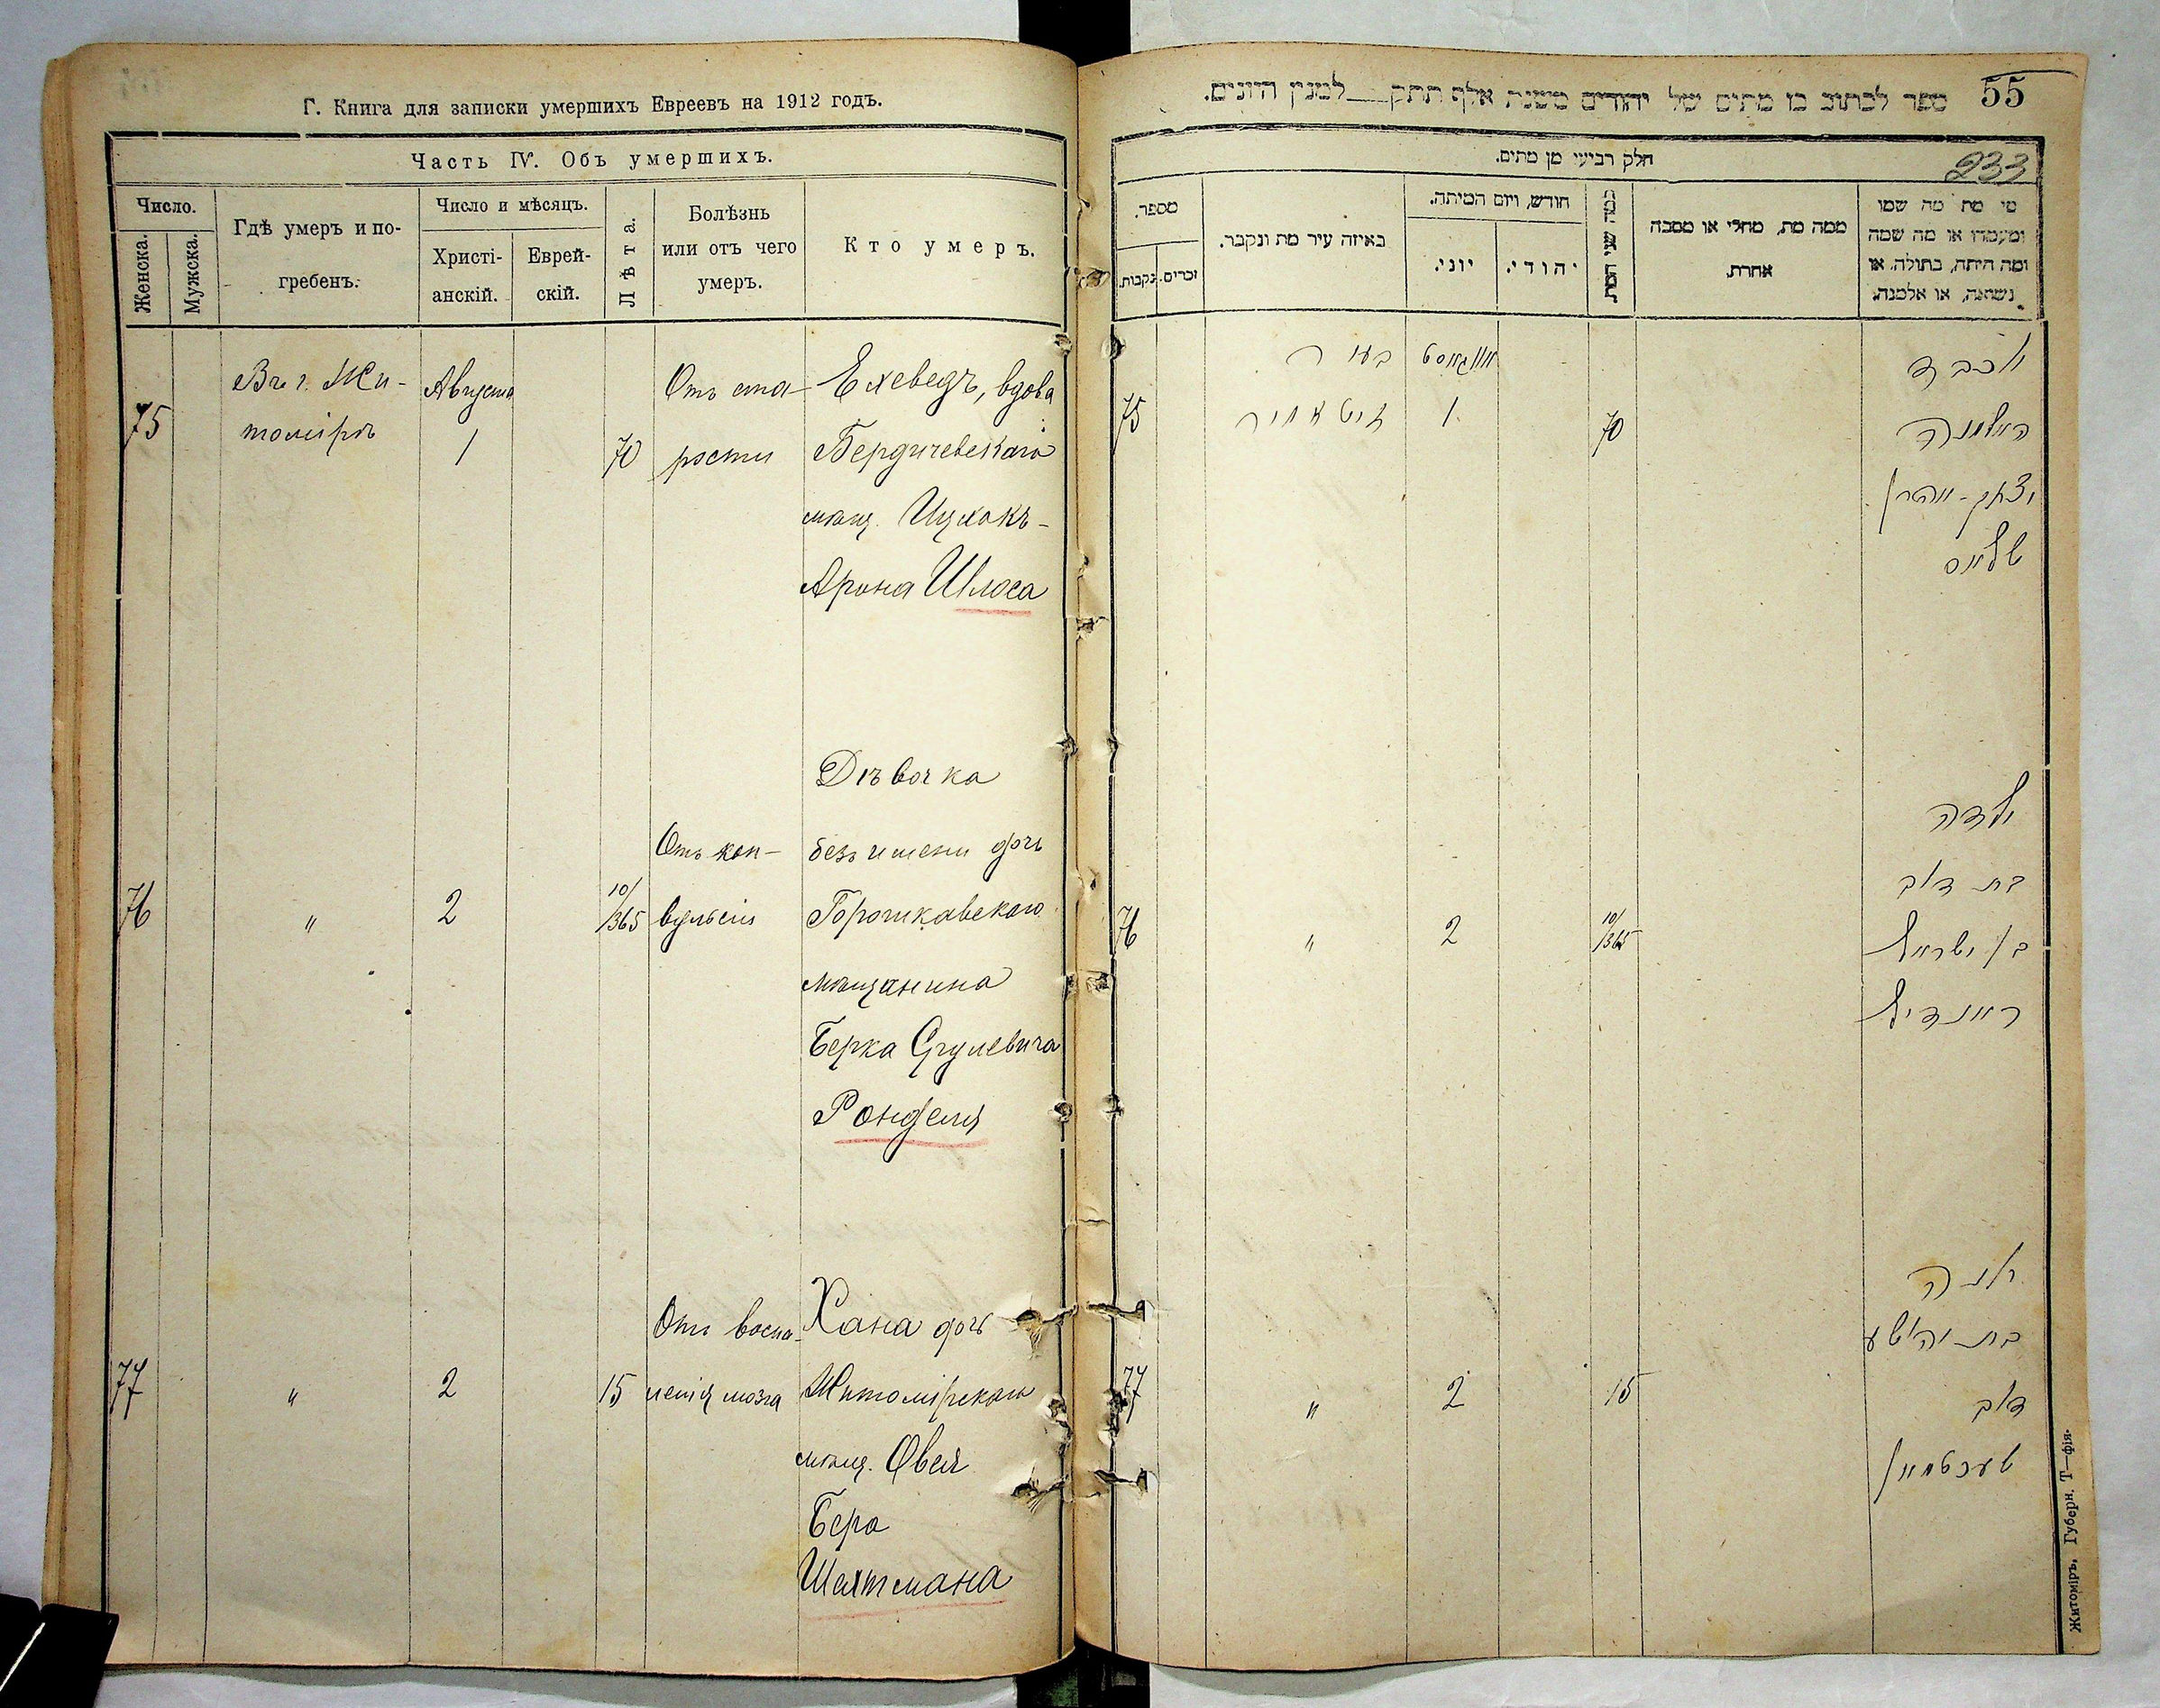 Г. Книга для записки умершихъ Евреевъ на 1912 годъ.
Часть IV. Объ умершихъ.
Число.
Женска.
Мужска.
Гдѣ умеръ и по-
гребенъ.
Число и мѣсяцъ.
Христі-
анскій.
Еврей-
скій.
Лѣта.
Болѣзнь
или отъ чего
умеръ.
Кто умеръ.
75
Въ г. Жи-
томірѣ
Августа
1
70
Отъ ста-
рости
Ехеведъ, вдова
Бердичевскаго
мѣщ. Ицхокъ-
Арона Шлоса
76
"
2
10/365
Отъ кон-
вульсіи
Дѣвочка
безъ имени дочь
Горошкавскаго
мѣщанина
Берка Срулевича
Ронделя
77
"
2
15
Отъ воспа-
ленія мозга
Хана дочь
Житомірскаго
мѣщ. Овсея
Бера
Шехтмана
ספר לכתוב בו מתים של יהודים משנת אלף תתק__למנין היונים.
55
233
חלק רביעי מן מתים.
מספר.
נקבות.
זכרים.
באיזה עיר מת ונקבר.
חודש, ויום המיתה.
יוני.
יהודי.
כמה שני המת
ממה מת, מחלי או מסבה
אחרת.
מי מת מה שמו
ומעמדו או מה שמה
ומה היתה, בתולה, או
נשואה, או אלמנה.
75
בעיר
זיטאמיר
אויגאסט
1
70
יוכבד
האלמנה
יצחק-אהרן
שלאס
76
"
2
10/365
ילדה
בת דוב
בן ישראל
ראנדיל
77
"
2
15
חנה
בת יהושע
דוב
שעכטמאן
Житоміръ, Губерн. Т—фія.